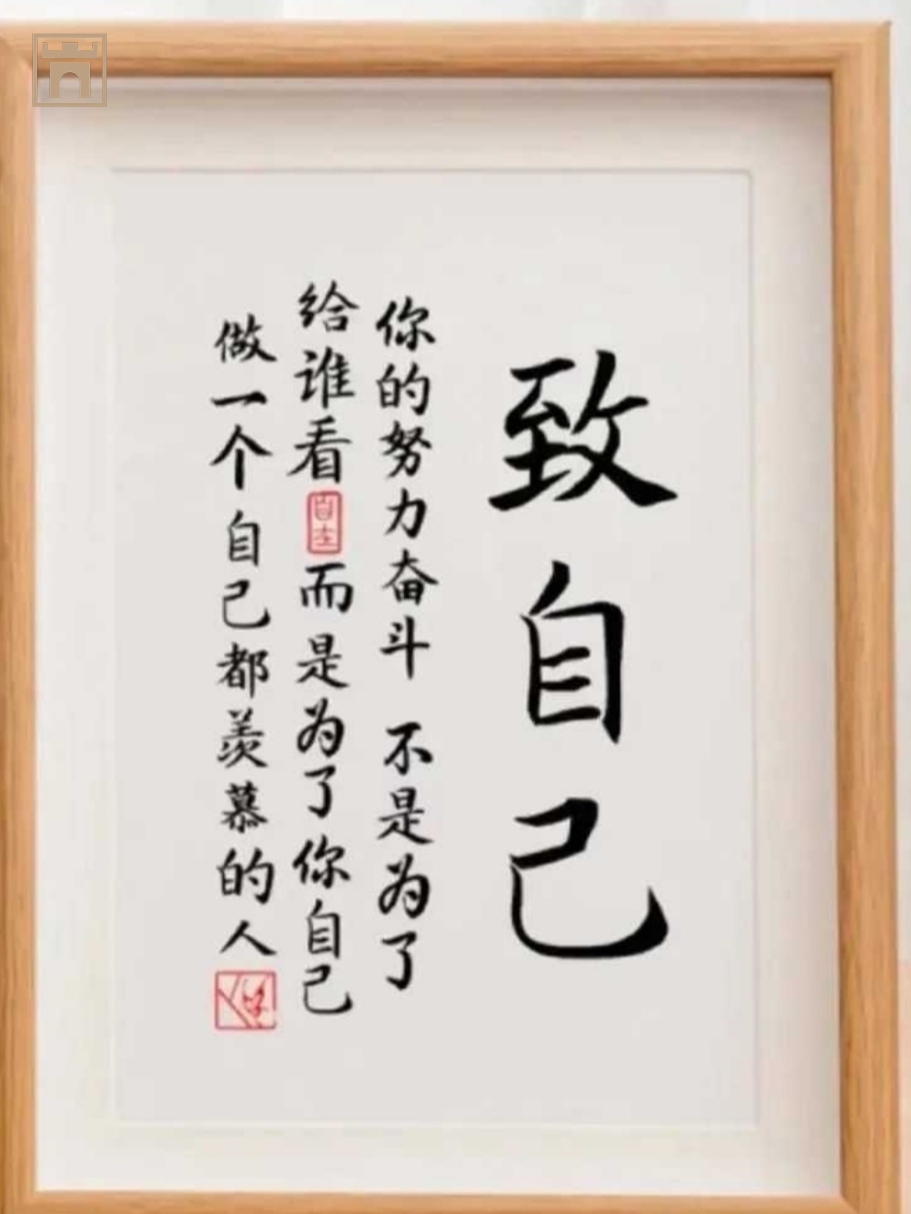 致自己
你的努力奋斗 不是为了
给谁看 自在 而是为了你自己
做一个自己都羡慕的人